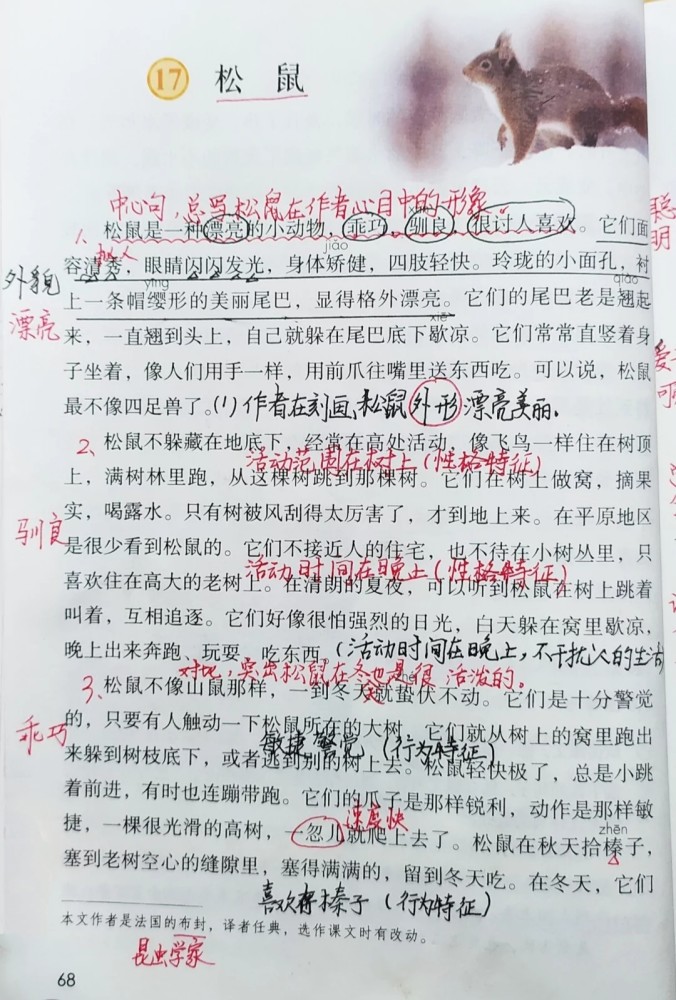 17 松鼠
中心句，总写松鼠在作者心目中的形象。
1、松鼠是一种漂亮的小动物，乖巧，驯良，很讨人喜欢。它们面
jiāo
拟人
容清秀，眼睛闪闪发光，身体矫健，四肢轻快。玲珑的小面孔，衬
外貌
yīng
qiào
上一条帽缨形的美丽尾巴，显得格外漂亮。它们的尾巴老是翘起
漂亮
xiē
来，一直翘到头上，自己就躲在尾巴底下歇凉。它们常常直竖着身
子坐着，像人们用手一样，用前爪往嘴里送东西吃。可以说，松鼠
最不像四足兽了。(1)作者在刻画松鼠外形漂亮美丽.
2、松鼠不躲藏在地底下，经常在高处活动，像飞鸟一样住在树顶
活动范围在树上(性格特征)
上，满树林里跑，从这棵树跳到那棵树。它们在树上做窝，摘果
实，喝露水。只有树被风刮得太厉害了，才到地上来。在平原地区
驯良
是很少看到松鼠的。它们不接近人的住宅，也不待在小树丛里，只
活动时间在晚上(性格特征)
喜欢住在高大的老树上。在清朗的夏夜，可以听到松鼠在树上跳着
叫着，互相追逐。它们好像很怕强烈的日光，白天躲在窝里歇凉，
晚上出来奔跑、玩耍、吃东西。(活动时间在晚上，不干扰人的生活
对比，突出松鼠在冬也是很活泼的。
天
3、松鼠不像山鼠那样，一到冬天就蛰伏不动。它们是十分警觉
的，只要有人触动一下松鼠所在的大树，它们就从树上的窝里跑出
乖巧
敏捷警觉(行为特征)
来躲到树枝底下，或者逃到别的树上去。松鼠轻快极了，总是小跳
着前进，有时也连蹦带跑。它们的爪子是那样锐利，动作是那样敏
速度快
捷，一棵很光滑的高树，一忽儿就爬上去了。松鼠在秋天拾榛子，
zhēn
塞到老树空心的缝隙里，塞得满满的，留到冬天吃。在冬天，它们
喜欢存榛子(行为特征)
本文作者是法国的布封，译者任典，选作课文时有改动。
昆虫学家
68
聪
明